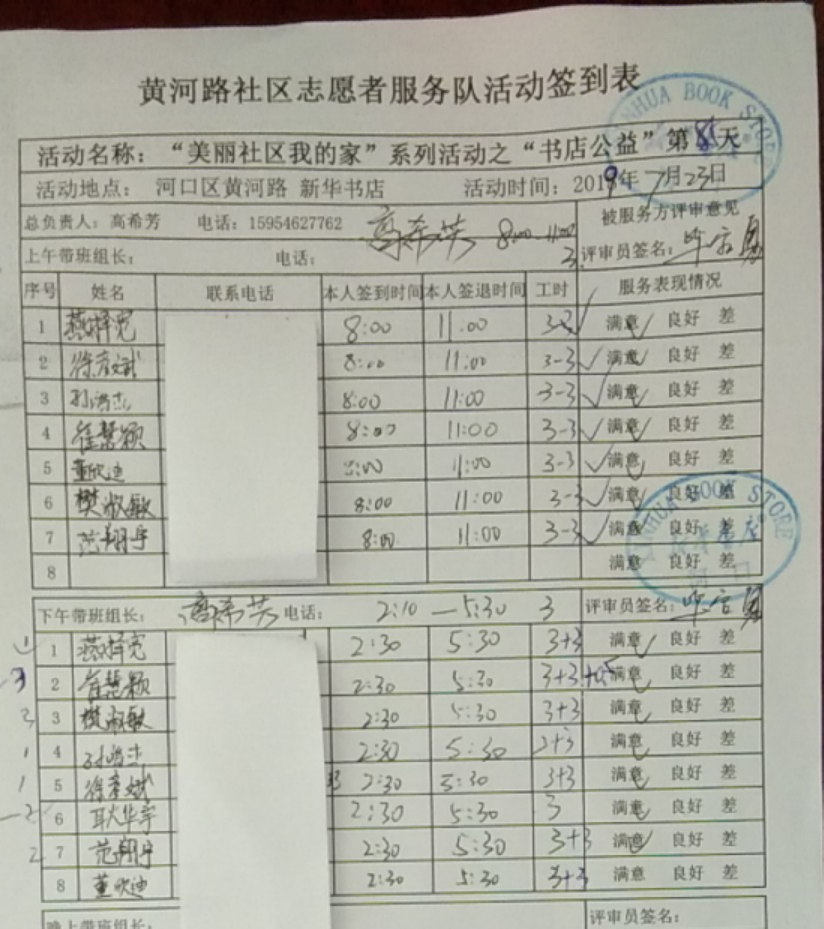 黄河路社区志愿者服务队活动签到表
活动名称：“美丽社区我的家”系列活动之“书店公益”第 天
活动地点： 河口区黄河路 新华书店 活动时间：2019年7月23日
总负责人：高希芳 电话：15954627762 高希芳 8:00-11:00 被服务方评审意见
上午带班组长： 电话： 3 评审员签名：
序号 姓名 联系电话 本人签到时间 本人签退时间 工时 服务表现情况
1 燕择宽 8:00 11:00 3-3 ✓ 满意✓ 良好 差
2 徐彦斌 8:00 11:00 3-3 ✓ 满意✓ 良好 差
3 孙浩杰 8:00 11:00 3-3 ✓ 满意✓ 良好 差
4 崔慧颖 8:00 11:00 3-3 ✓ 满意✓ 良好 差
5 董欣迪 8:00 11:00 3-3 ✓ 满意✓ 良好 差
6 樊淑敏 8:00 11:00 3-3 ✓ 满意✓ 良好 差
7 范翔宇 8:00 11:00 3-3 ✓ 满意✓ 良好 差
8 满意 良好 差
XINHUA BOOK STORE
下午带班组长： 高希芳 电话： 2:10—5:30 3 评审员签名：
1 燕择宽 2:30 5:30 3+3 满意✓ 良好 差
2 崔慧颖 2:30 5:30 3+3 满意✓ 良好 差
3 樊淑敏 2:30 5:30 3+3 满意✓ 良好 差
4 孙浩杰 2:30 5:30 3+3 满意✓ 良好 差
5 徐彦斌 2:30 5:30 3+3 满意✓ 良好 差
6 耿华宇 2:30 5:30 3 满意✓ 良好 差
7 范翔宇 2:30 5:30 3+3 满意✓ 良好 差
8 董欣迪 2:30 5:30 3+3 满意 良好 差
晚上带班组长： 评审员签名：